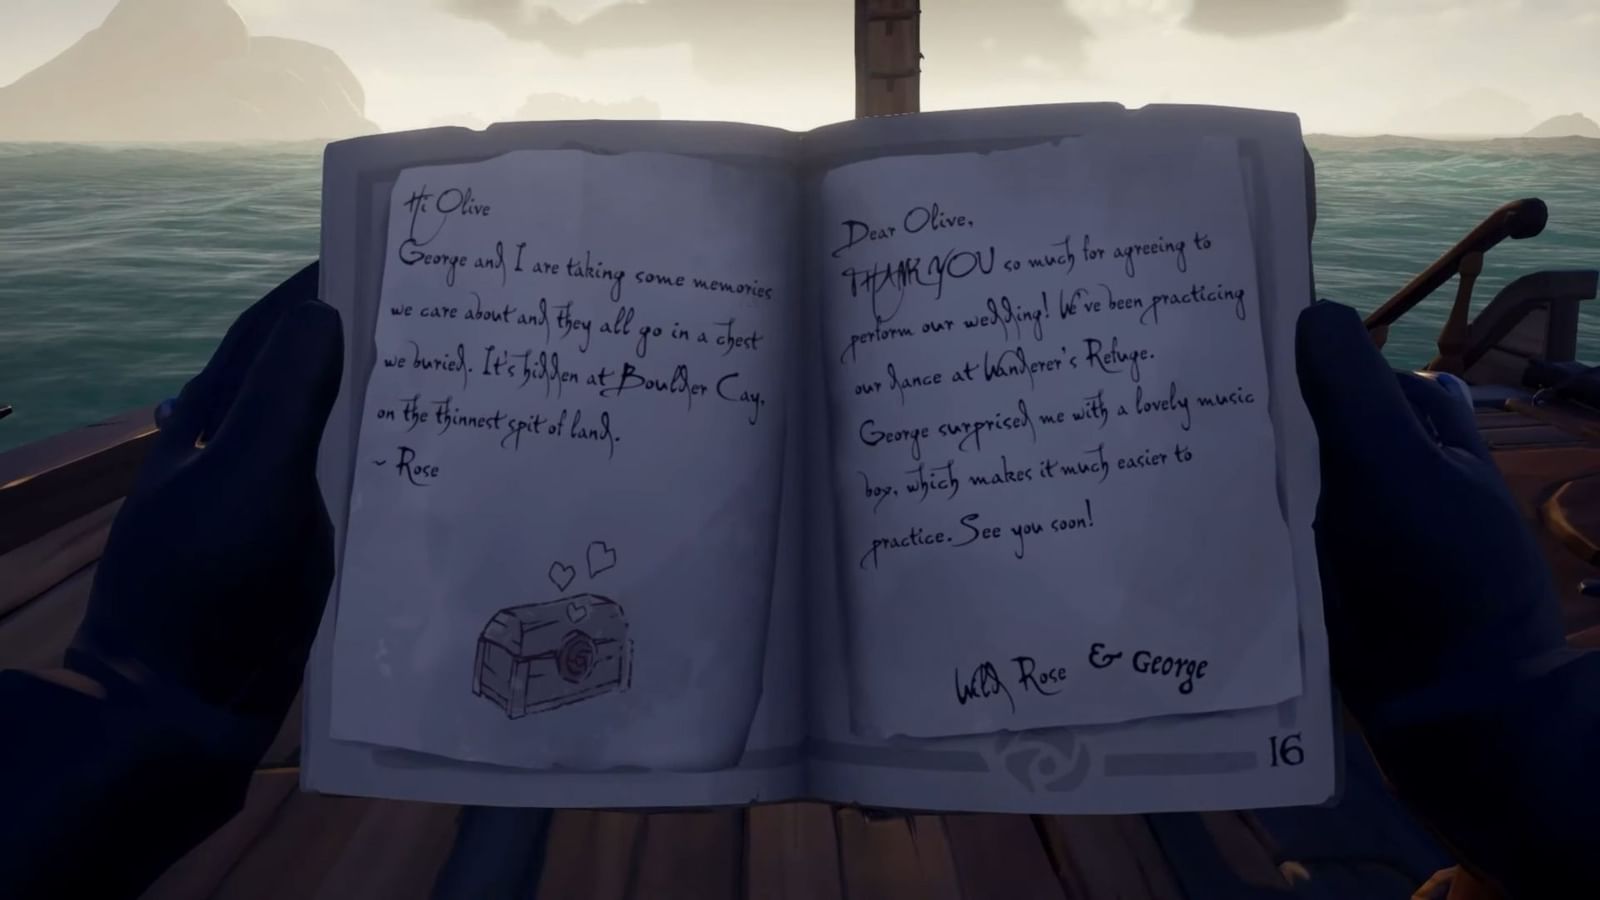 Hi Olive
George and I are taking some memories
we care about and they all go in a chest
we buried. It's hidden at Boulder Cay,
on the thinnest spit of land.
~ Rose
Dear Olive,
THANK YOU so much for agreeing to
perform our wedding! We've been practicing
our dance at Wanderer's Refuge.
George surprised me with a lovely music
box, which makes it much easier to
practice. See you soon!
Wild Rose & George
16